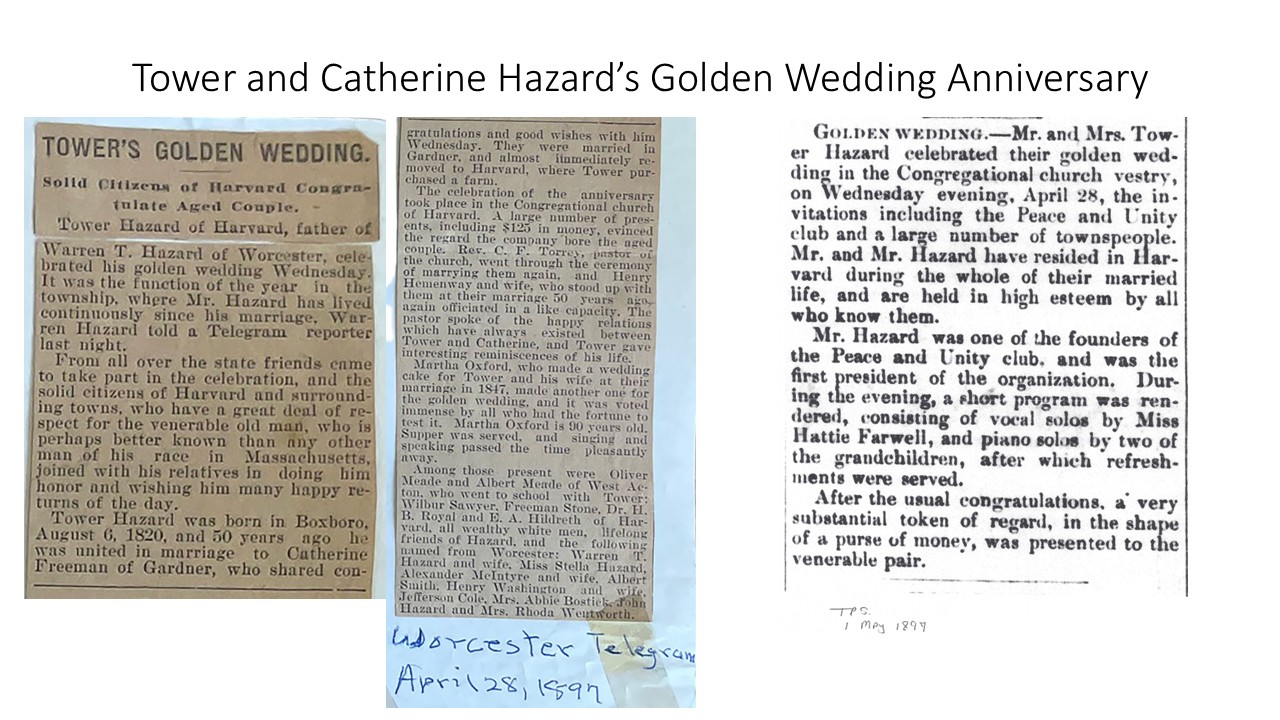 Tower and Catherine Hazard’s Golden Wedding Anniversary
TOWER'S GOLDEN WEDDING.
Solid Citizens of Harvard Congra-
tulate Aged Couple.
Tower Hazard of Harvard, father of
Warren T. Hazard of Worcester, cele-
brated his golden wedding Wednesday.
It was the function of the year in the
township, where Mr. Hazard has lived
continuously since his marriage, War-
ren Hazard told a Telegram reporter
last night.
From all over the state friends came
to take part in the celebration, and the
solid citizens of Harvard and surround-
ing towns, who have a great deal of re-
spect for the venerable old man, who is
perhaps better known than any other
man of his race in Massachusetts,
joined with his relatives in doing him
honor and wishing him many happy re-
turns of the day.
Tower Hazard was born in Boxboro,
August 6, 1820, and 50 years ago he
was united in marriage to Catherine
Freeman of Gardner, who shared con-
gratulations and good wishes with him
Wednesday. They were married in
Gardner, and almost immediately re-
moved to Harvard, where Tower pur-
chased a farm.
The celebration of the anniversary
took place in the Congregational church
of Harvard. A large number of pres-
ents, including $125 in money, evinced
the regard the company bore the aged
couple. Rev. C. F. Torrey, pastor of
the church, went through the ceremony
of marrying them again, and Henry
Hemenway and wife, who stood up with
them at their marriage 50 years ago,
again officiated in a like capacity. The
pastor spoke of the happy relations
which have always existed between
Tower and Catherine, and Tower gave
interesting reminiscences of his life.
Martha Oxford, who made a wedding
cake for Tower and his wife at their
marriage in 1847, made another one for
the golden wedding, and it was voted
immense by all who had the fortune to
test it. Martha Oxford is 90 years old.
Supper was served, and singing and
speaking passed the time pleasantly
away.
Among those present were Oliver
Meade and Albert Meade of West Ac-
ton, who went to school with Tower;
Wilbur Sawyer, Freeman Stone, Dr. H.
B. Royal and E. A. Hildreth of Har-
vard, all wealthy white men, lifelong
friends of Hazard, and the following
named from Worcester: Warren T.
Hazard and wife, Miss Stella Hazard,
Alexander McIntyre and wife, Albert
Smith, Henry Washington and wife,
Jefferson Cole, Mrs. Abbie Bostick, John
Hazard and Mrs. Rhoda Wentworth.
Worcester Telegram
April 28, 1897
GOLDEN WEDDING.—Mr. and Mrs. Tow-
er Hazard celebrated their golden wed-
ding in the Congregational church vestry,
on Wednesday evening, April 28, the in-
vitations including the Peace and Unity
club and a large number of townspeople.
Mr. and Mr. Hazard have resided in Har-
vard during the whole of their married
life, and are held in high esteem by all
who know them.
Mr. Hazard was one of the founders of
the Peace and Unity club, and was the
first president of the organization. Dur-
ing the evening, a short program was ren-
dered, consisting of vocal solos by Miss
Hattie Farwell, and piano solos by two of
the grandchildren, after which refresh-
ments were served.
After the usual congratulations, a very
substantial token of regard, in the shape
of a purse of money, was presented to the
venerable pair.
TPS.
1 May 1897